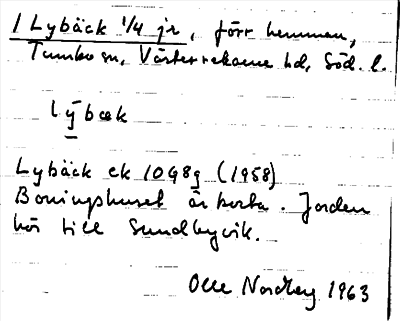 1 Lybäck 1/4 jr, förr hemman,
Tumbo sn, Västerrekarne hd, Söd. l.
lȳbæk
Lybäck ek 10G8g (1958)
Boningshuset är borta. Jorden
hör till Sundbyvik.
Olle Nordberg 1963